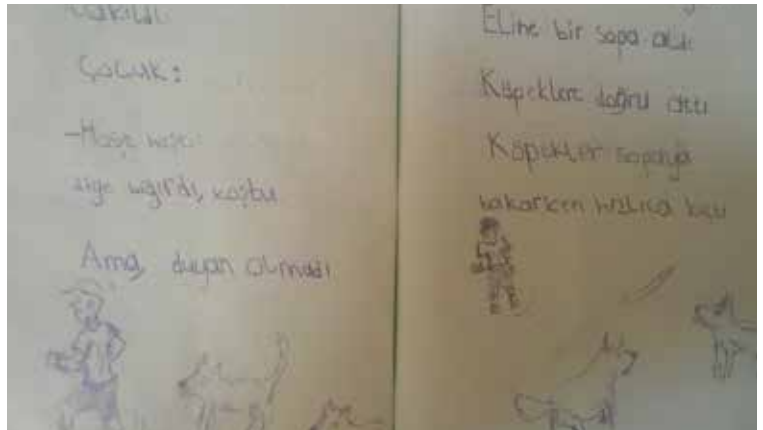 Çocuk:
diye bağırdı, koştu
Ama, duyan olmadı
Eline bir sopa aldı
Köpeklere doğru attı
Köpekler sopaya
bakarken hızlıca kaçtı